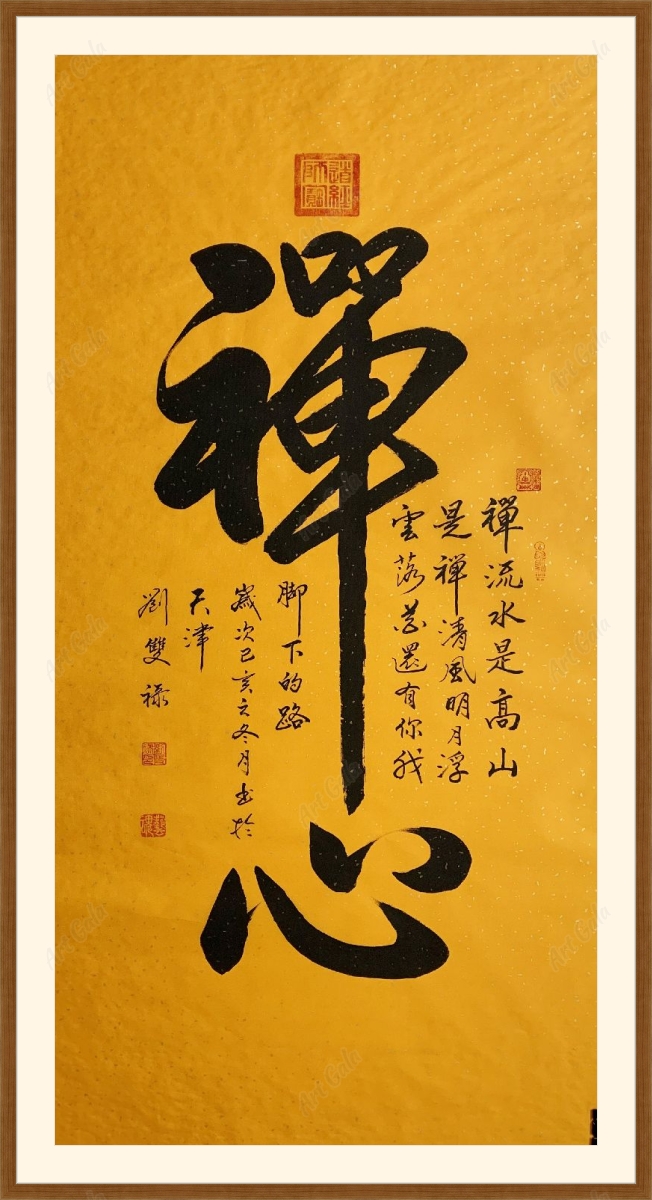 禪心
道經師寶
禪流水是高山
是禪清風明月浮
雲落花還有你我
脚下的路
歲次己亥之冬月书於
天津
劉雙祿
Art Gala